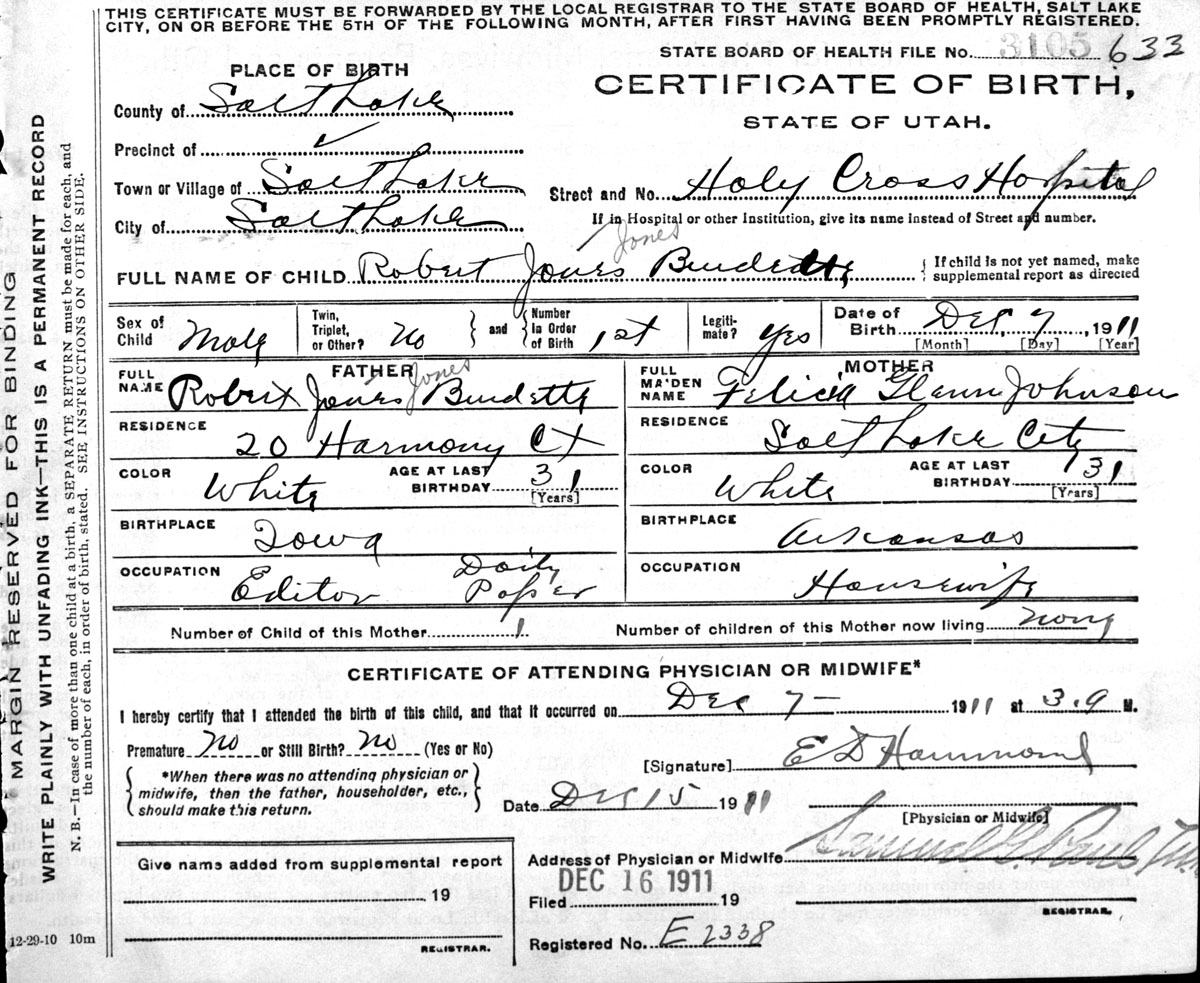 THIS CERTIFICATE MUST BE FORWARDED BY THE LOCAL REGISTRAR TO THE STATE BOARD OF HEALTH, SALT LAKE
CITY, ON OR BEFORE THE 5TH OF THE FOLLOWING MONTH, AFTER FIRST HAVING BEEN PROMPTLY REGISTERED.
STATE BOARD OF HEALTH FILE No. 3105 633
PLACE OF BIRTH
CERTIFICATE OF BIRTH,
STATE OF UTAH.
County of Salt Lake
Precinct of ✓
Town or Village of Salt Lake
Street and No. Holy Cross Hospital
City of Salt Lake
If in Hospital or other Institution, give its name instead of Street and number.
Jones
FULL NAME OF CHILD Robert Jones Burdette { If child is not yet named, make
supplemental report as directed
Sex of Child Male
Twin, Triplet, or Other? No } and { Number in Order of Birth 1st
Legiti- mate? Yes
Date of Birth Dec 7, 1911
[Month] [Day] [Year]
FATHER
FULL NAME Robert Jones Burdette
Jones
RESIDENCE 20 Harmony Ct
COLOR White AGE AT LAST BIRTHDAY 31
[Years]
BIRTHPLACE Iowa
OCCUPATION Editor Daily Paper
MOTHER
FULL MAIDEN NAME Felicia Johnson
RESIDENCE Salt Lake City
COLOR White AGE AT LAST BIRTHDAY 31
[Years]
BIRTHPLACE Arkansas
OCCUPATION Housewife
Number of Child of this Mother 1 Number of children of this Mother now living none
CERTIFICATE OF ATTENDING PHYSICIAN OR MIDWIFE*
I hereby certify that I attended the birth of this child, and that it occurred on Dec 7 – 1911 at 3.9 M.
Premature No or Still Birth? No (Yes or No)
[Signature] E D Hammond
{ *When there was no attending physician or
midwife, then the father, householder, etc.,
should make this return. }
Date Dec 15 1911
[Physician or Midwife]
Give name added from supplemental report
19
REGISTRAR.
Address of Physician or Midwife
Samuel G. Paul
DEC 16 1911
Filed 19
REGISTRAR.
Registered No. E 2338
12-29-10 10m
MARGIN RESERVED FOR BINDING
WRITE PLAINLY WITH UNFADING INK—THIS IS A PERMANENT RECORD
N. B.—In case of more than one child at a birth, a SEPARATE RETURN must be made for each, and
the number of each, in order of birth, stated. SEE INSTRUCTIONS ON OTHER SIDE.